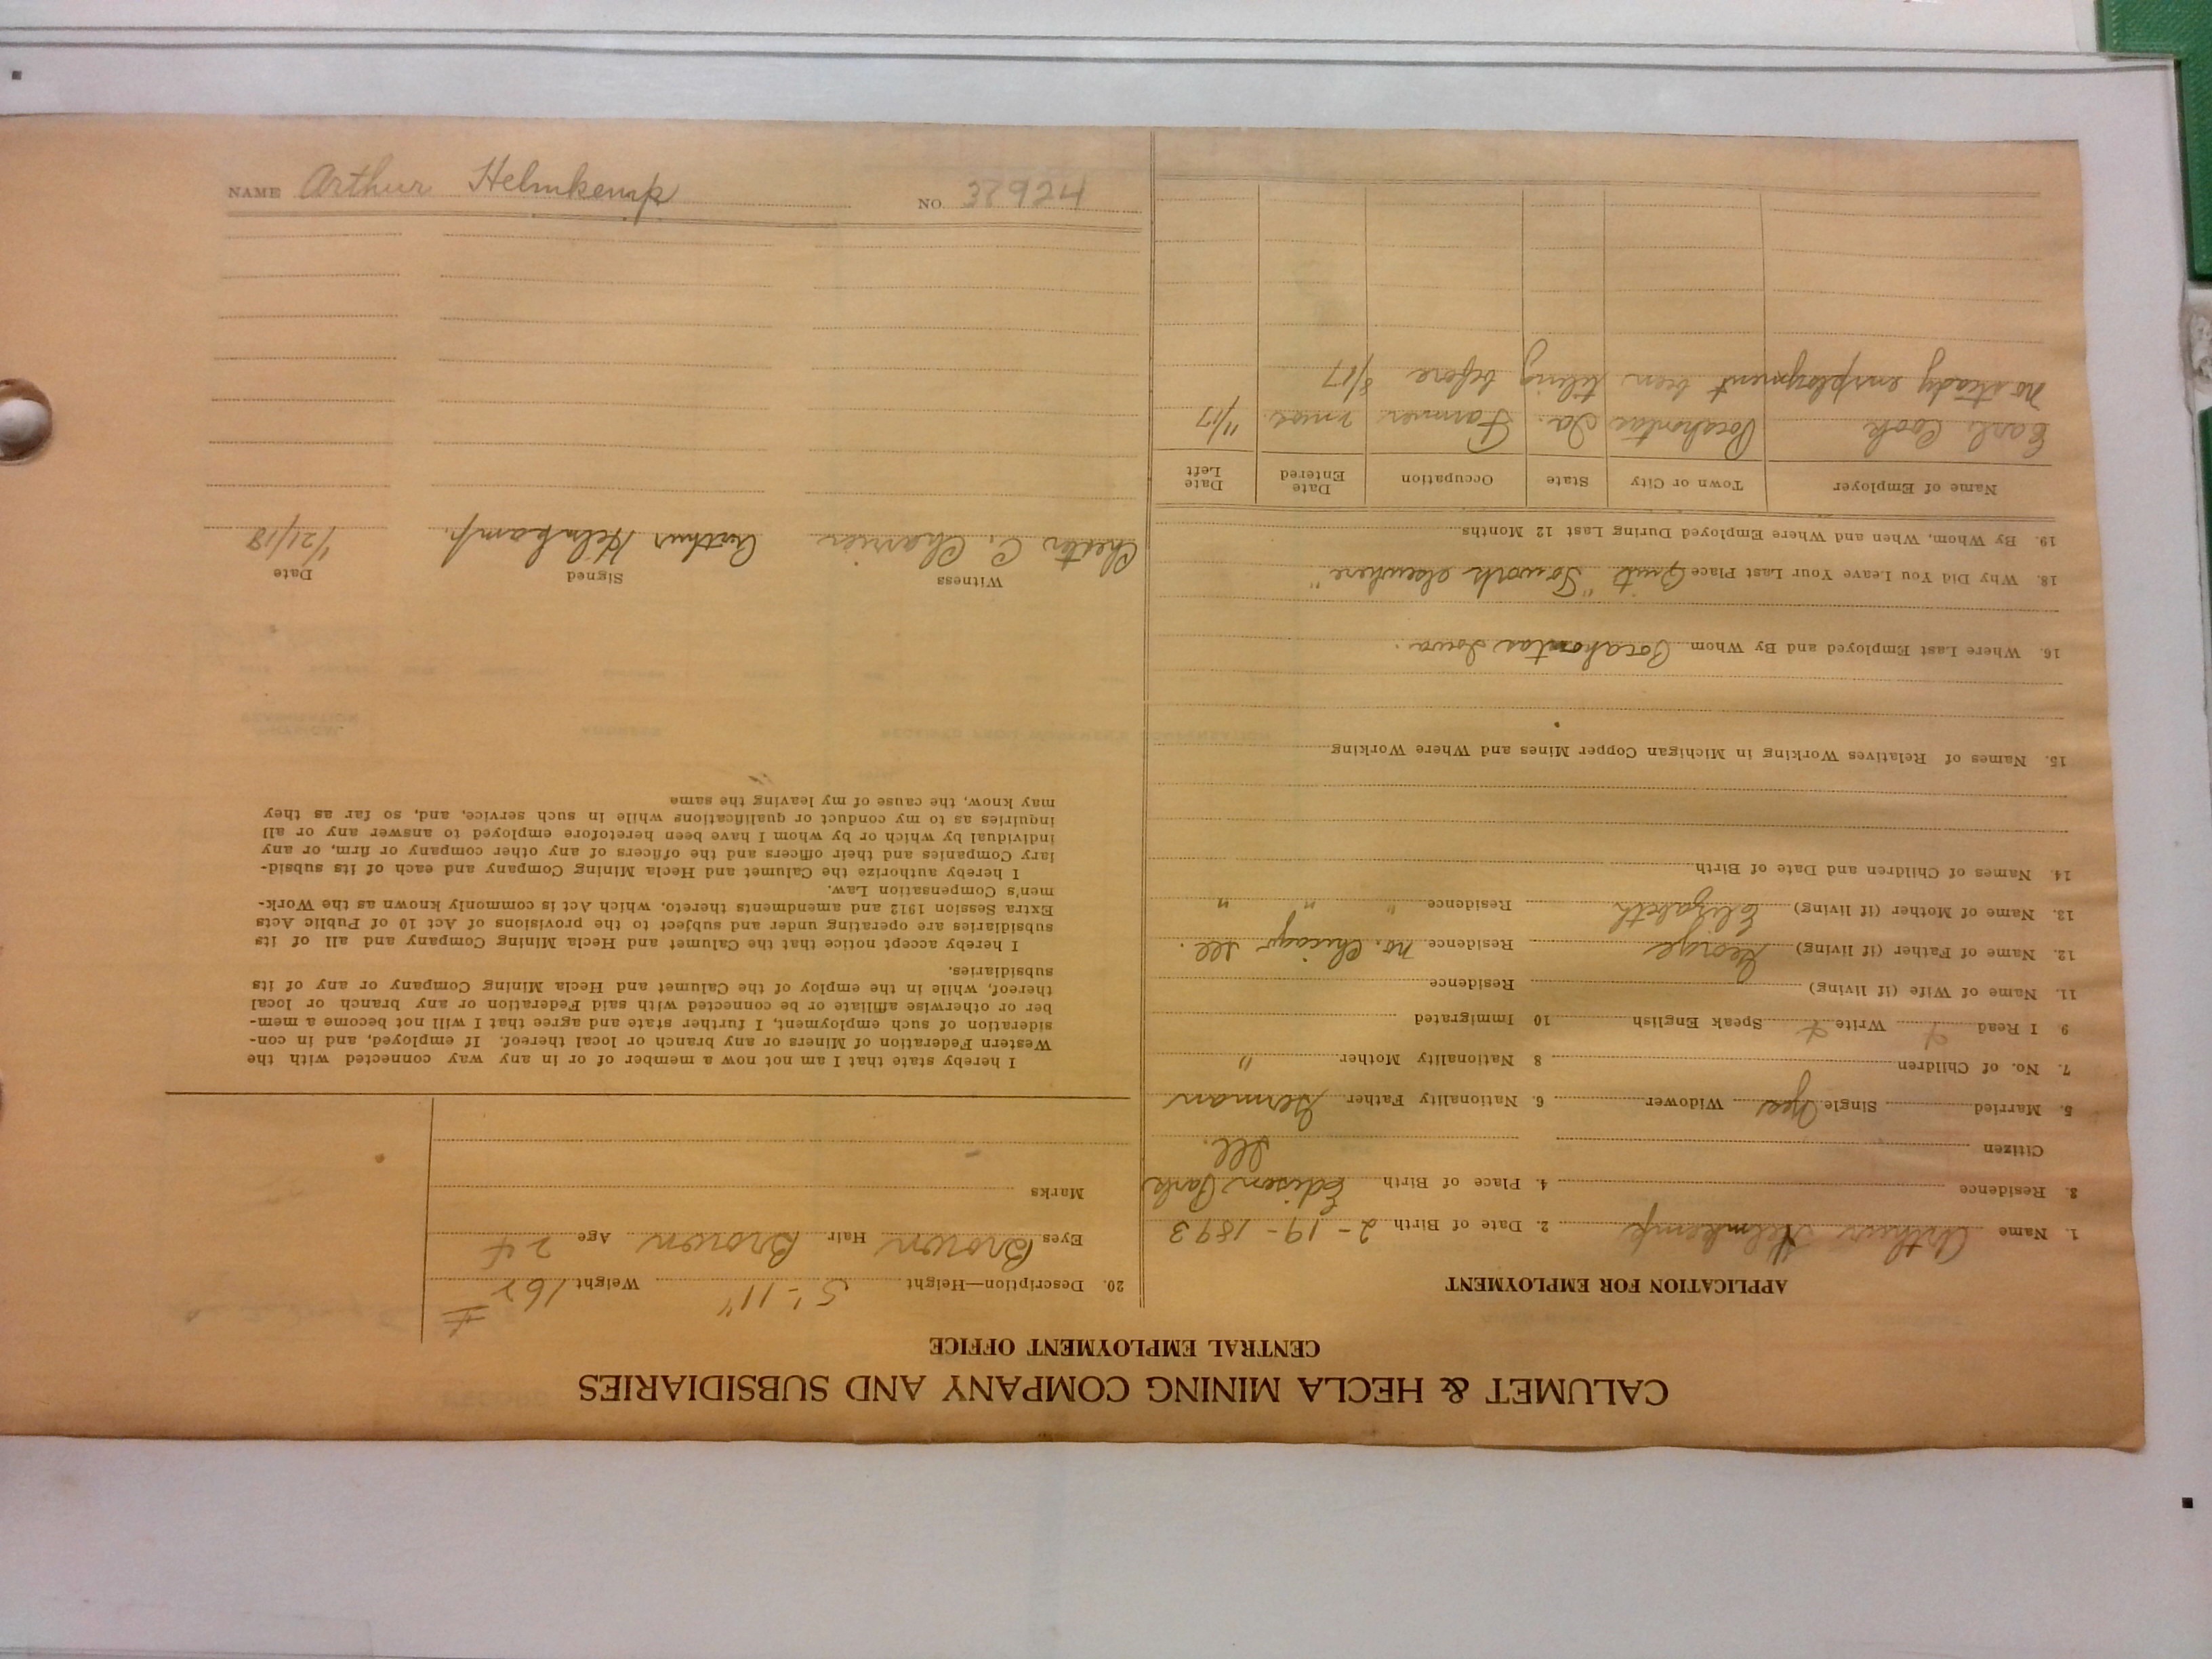 CALUMET & HECLA MINING COMPANY AND SUBSIDIARIES
CENTRAL EMPLOYMENT OFFICE
APPLICATION FOR EMPLOYMENT
1. Name Arthur Helmkemp 2. Date of Birth 2-19-1893
3. Residence 4. Place of Birth Edison Park
Citizen Ill.
5. Married Single Yes Widower 6. Nationality Father German
7. No. of Children 8 Nationality Mother "
9 I Read Write Speak English 10 Immigrated
11. Name of Wife (if living) Residence
12. Name of Father (if living) George Residence No. Chicago Ill.
13. Name of Mother (if living) Elizabeth Residence " " "
14. Names of Children and Date of Birth
15. Names of Relatives Working in Michigan Copper Mines and Where Working
16. Where Last Employed and By Whom Pocahontas Iowa.
18. Why Did You Leave Your Last Place Quit "To work elsewhere"
19. By Whom, When and Where Employed During Last 12 Months
Name of Employer Town or City State Occupation Date Entered Date Left
Earl Cook Pocahontas Ia. Farmer 2 mos. 11/17
No steady employment been tiling before 8/17
20. Description—Height 5'-11" Weight 162 #
Eyes Brown Hair Brown Age 24
Marks
I hereby state that I am not now a member of or in any way connected with the
Western Federation of Miners or any branch or local thereof. If employed, and in con-
sideration of such employment, I further state and agree that I will not become a mem-
ber or otherwise affiliate or be connected with said Federation or any branch or local
thereof, while in the employ of the Calumet and Hecla Mining Company or any of its
subsidiaries.
I hereby accept notice that the Calumet and Hecla Mining Company and all of its
subsidiaries are operating under and subject to the provisions of Act 10 of Public Acts
Extra Session 1912 and amendments thereto, which Act is commonly known as the Work-
men's Compensation Law.
I hereby authorize the Calumet and Hecla Mining Company and each of its subsid-
iary Companies and their officers and the officers of any other company or firm, or any
individual by which or by whom I have been heretofore employed to answer any or all
inquiries as to my conduct or qualifications while in such service, and, so far as they
may know, the cause of my leaving the same
Witness Signed Date
Chester C. Charrier Arthur Helmkamp. 1/21/18
NAME Arthur Helmkemp NO. 38924